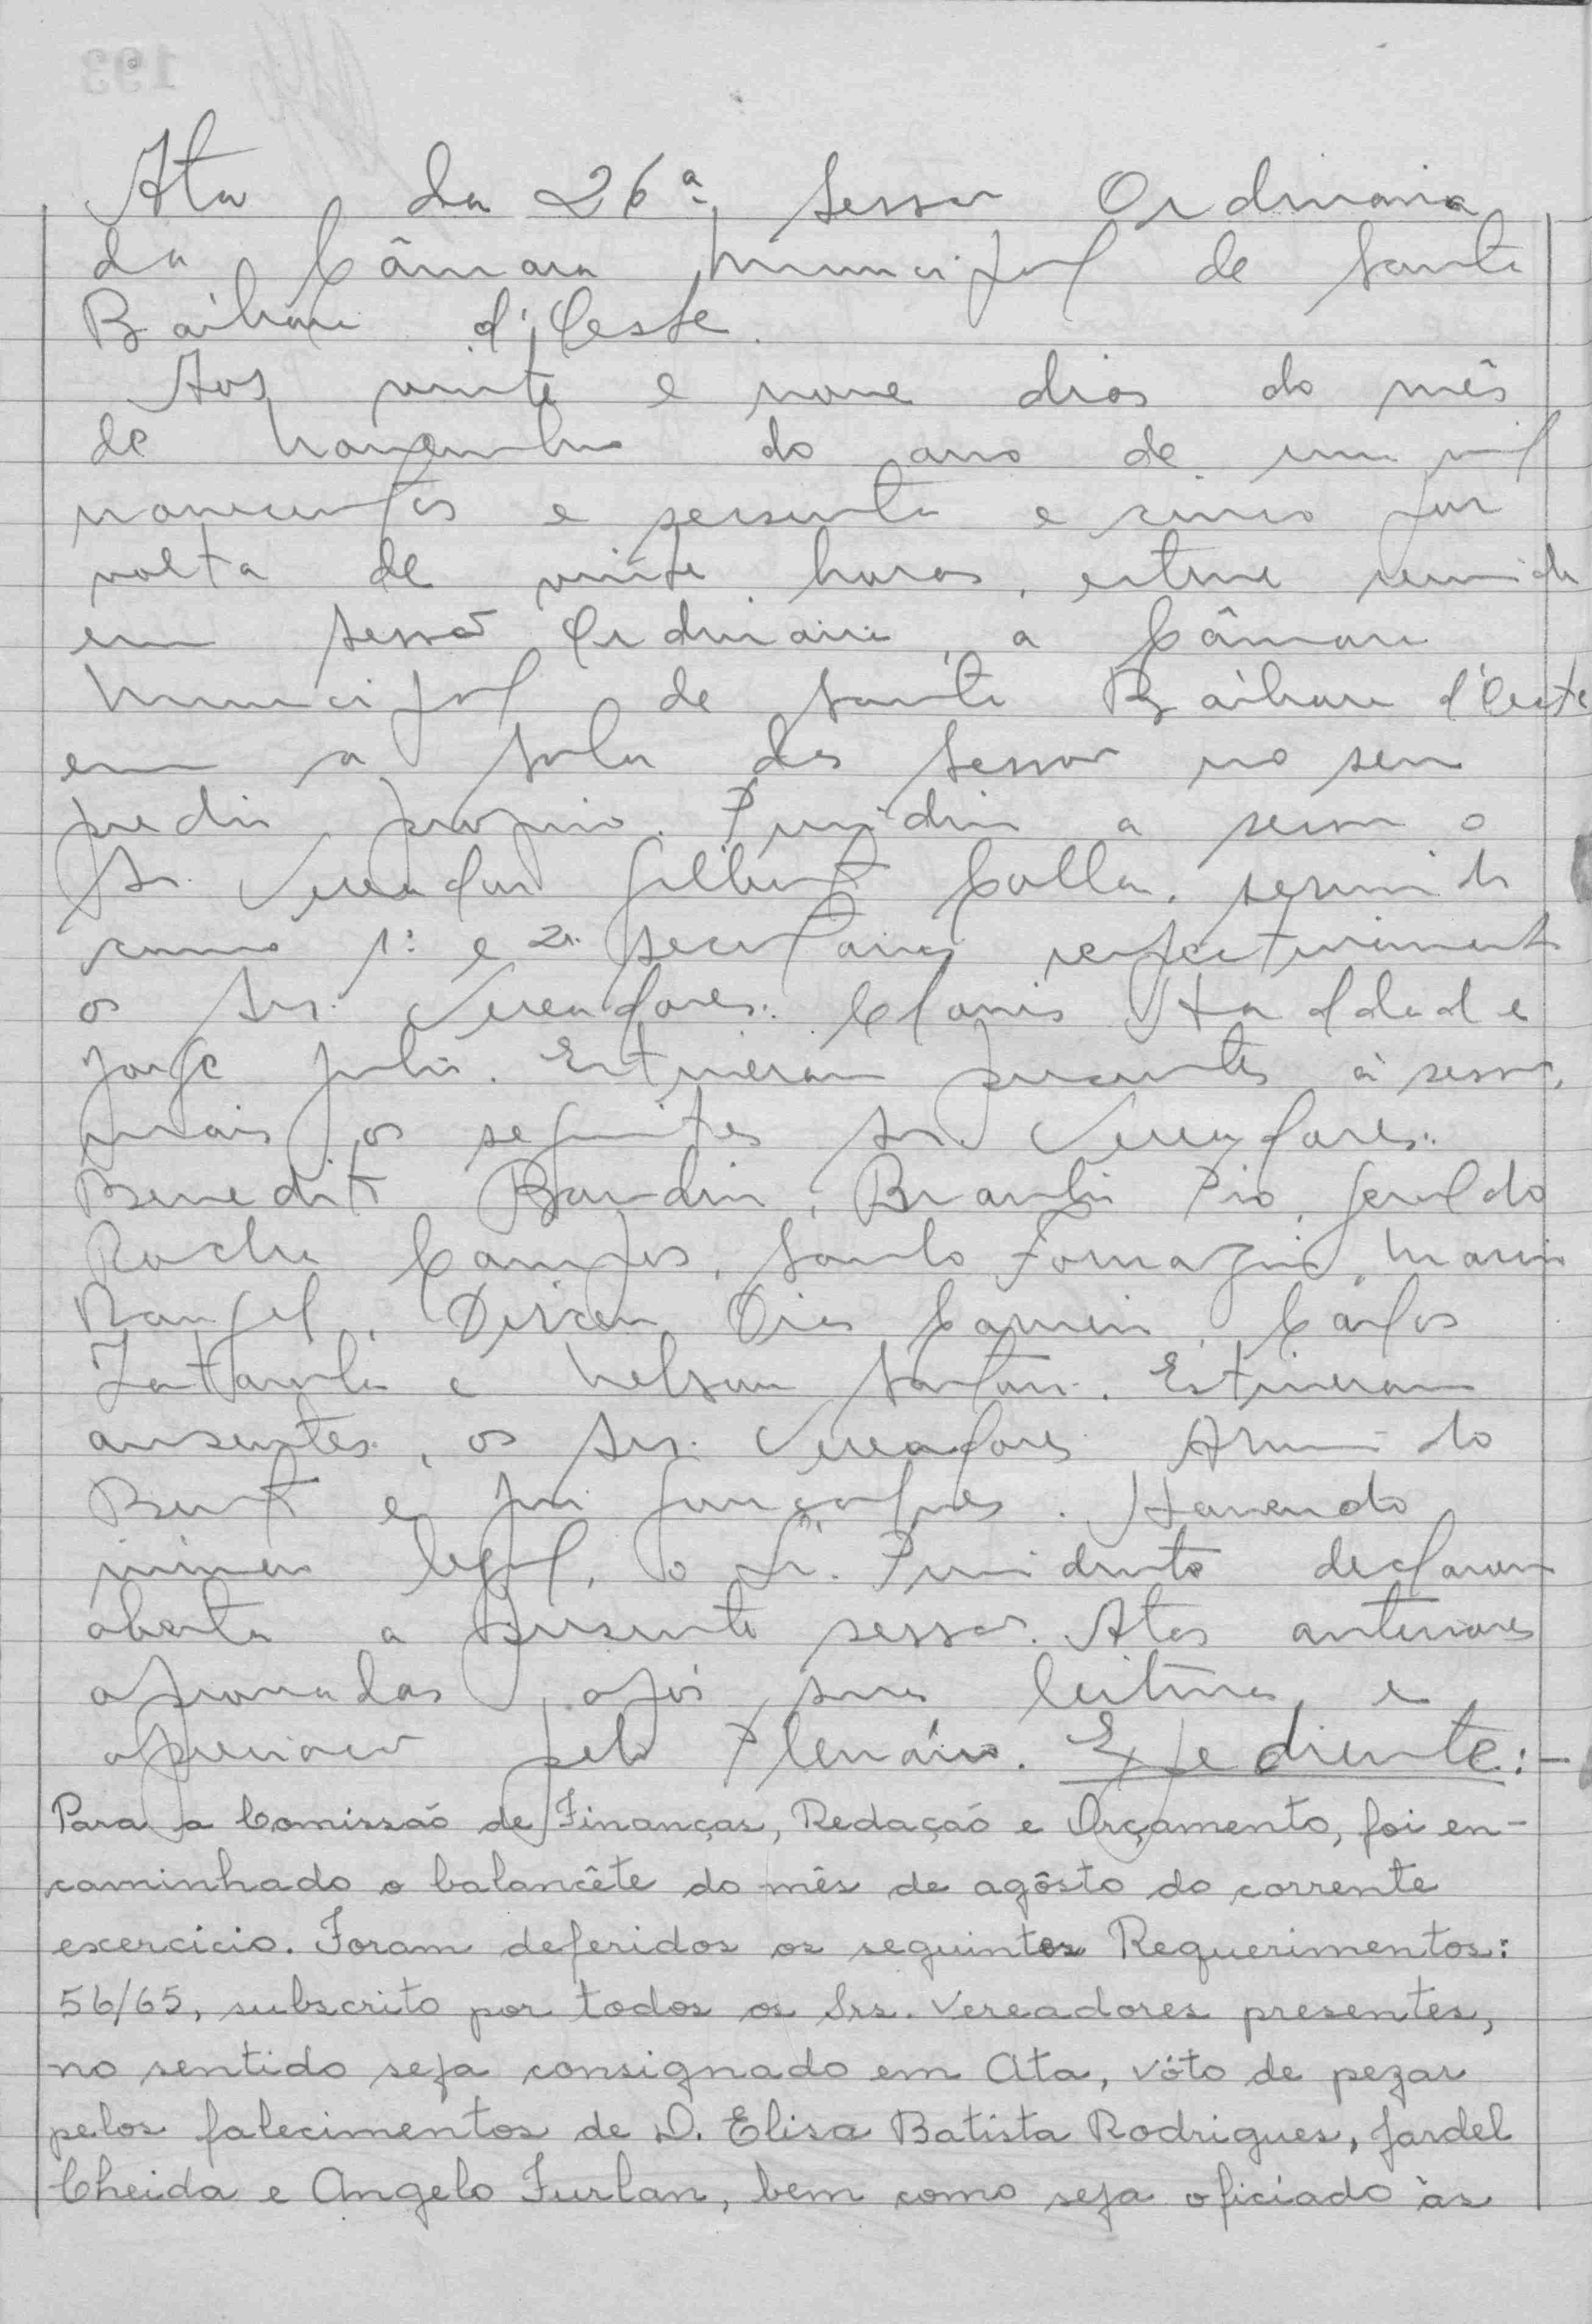 Ata da 26ª Sessão Ordinaria
da Câmara Municipal de Santa
Bárbara d'Oeste.
Aos vinte e nove dias do mês
de Novembro do ano de um mil
novecentos e sessenta e cinco por
volta de vinte horas, esteve reunida
em sessão Ordinaria, a Câmara
Municipal de Santa Bárbara d'Oeste
em a sala das Sessões no seu
predio proprio. Presidiu a sessão o
Sr. Vereador Gilberto Colla, servindo
como 1º e 2º secretarios respectivamente
os Srs. Vereadores: Clovis Haddad e
Jorge Julio. Estiveram presentes à sessão,
mais os seguintes Srs. Vereadores:
Benedito Bandin, Braulio Pio, Geraldo
Rocha Campos, Santo Fornazin, Mario
Rangel, Dirceu Dias Carneiro, Carlos
Zattarelo e Nelson Santan. Estiveram
ausentes, os Srs. Vereadores Armindo
e Gonçalves. Havendo
número legal, o Sr. Presidente declarou
aberta a presente sessão. Atas anteriores
aprovadas após sua leitura e
apreciação pelo Plenário. Expediente:-
Para a Comissão de Finanças, Redação e Orçamento, foi en-
caminhado o balancête do mês de agôsto do corrente
excercicio. Foram deferidos os seguintes Requerimentos:
56/65, subscrito por todos os Srs. Vereadores presentes,
no sentido seja consignado em Ata, vóto de pezar
pelos falecimentos de D. Elisa Batista Rodrigues, Jardel
Cheida e Angelo Furlan, bem como seja oficiado às